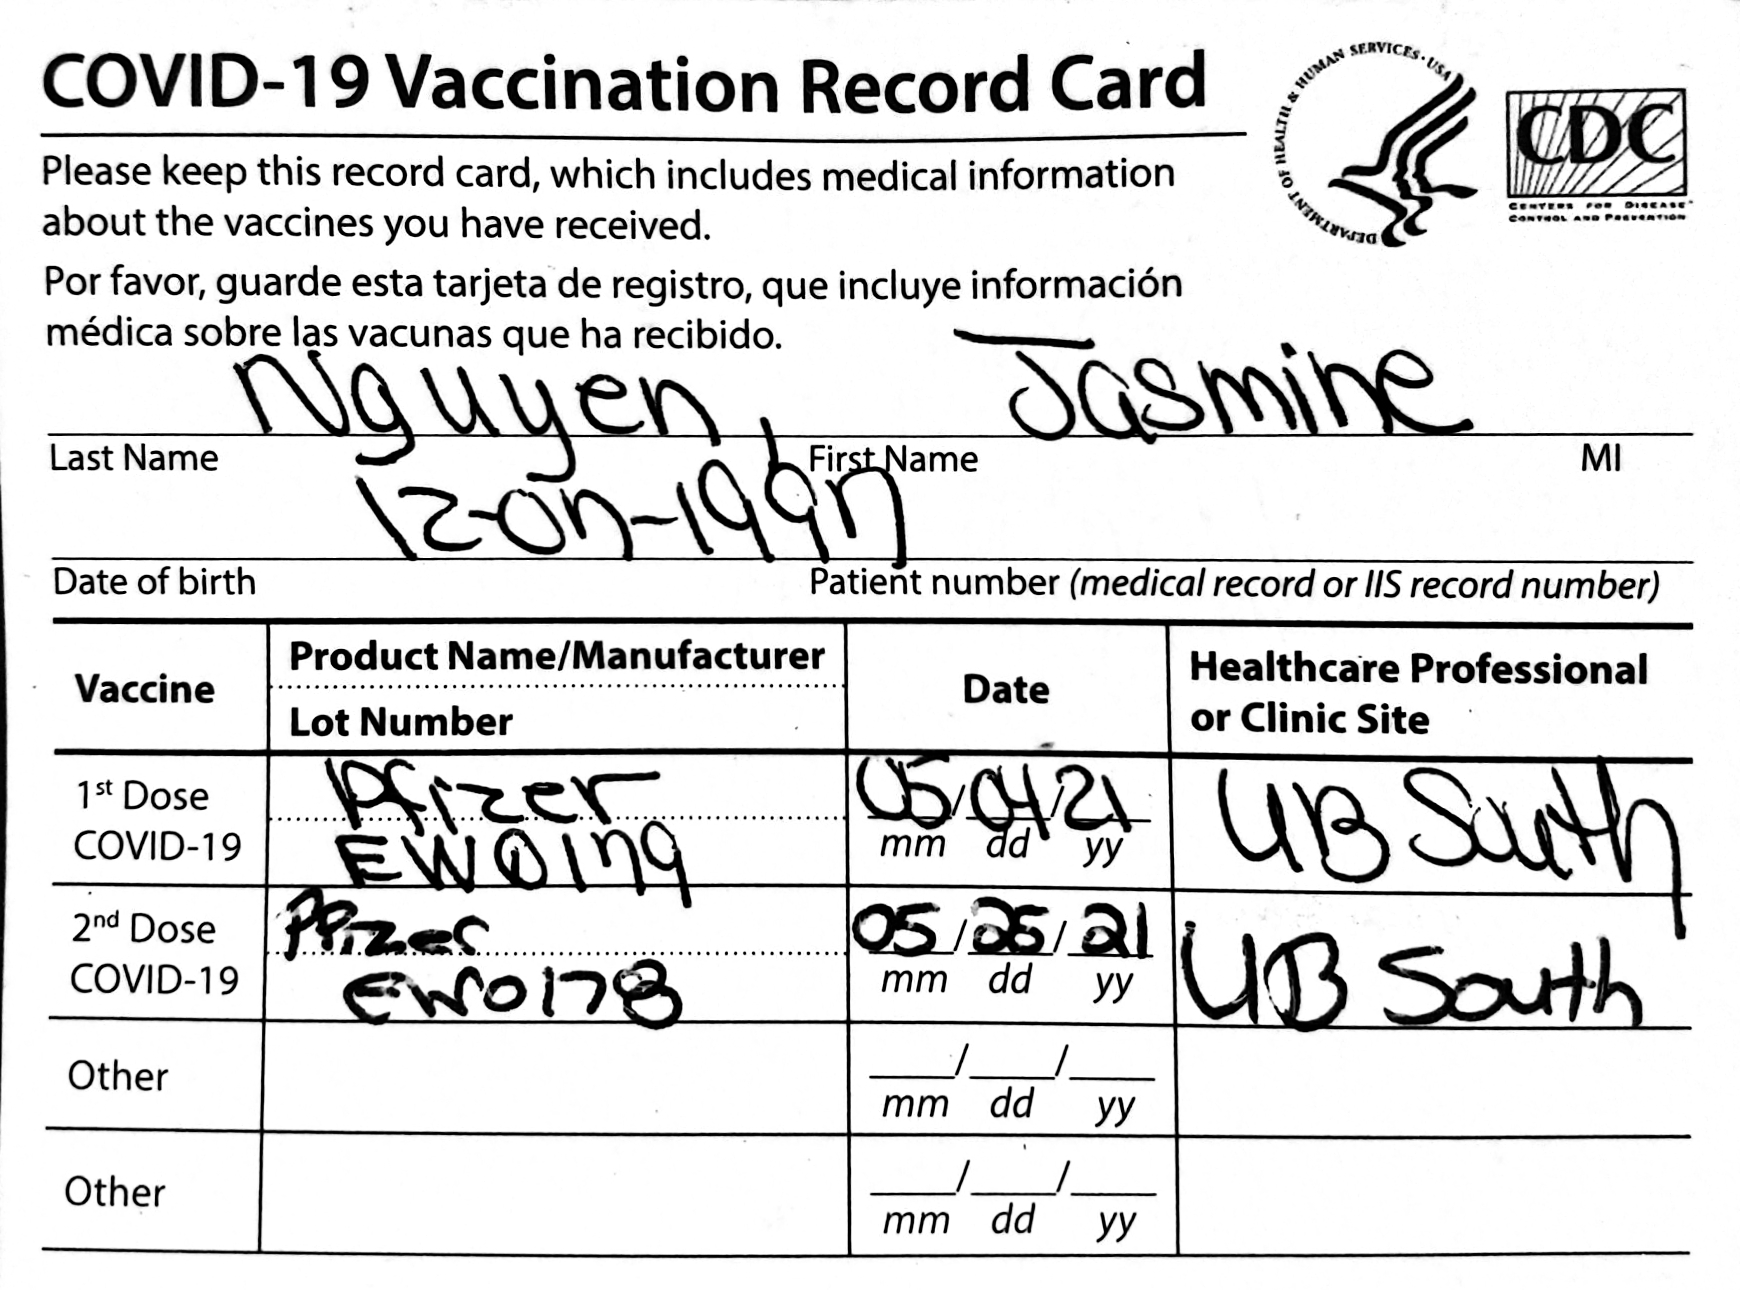 COVID-19 Vaccination Record Card
DEPARTMENT OF HEALTH & HUMAN SERVICES · USA
CDC
CENTERS FOR DISEASE
CONTROL AND PREVENTION
Please keep this record card, which includes medical information
about the vaccines you have received.
Por favor, guarde esta tarjeta de registro, que incluye información
médica sobre las vacunas que ha recibido.
Nguyen, Jasmine
Last Name First Name MI
12-07-1997
Date of birth Patient number (medical record or IIS record number)
Vaccine Product Name/Manufacturer Date Healthcare Professional
Lot Number or Clinic Site
1st Dose Pfizer 05/04/21 UB South
COVID-19 EW0179 mm dd yy
2nd Dose Pfizer 05/25/21 UB South
COVID-19 EW0178 mm dd yy
Other ___/___/___
mm dd yy
Other ___/___/___
mm dd yy